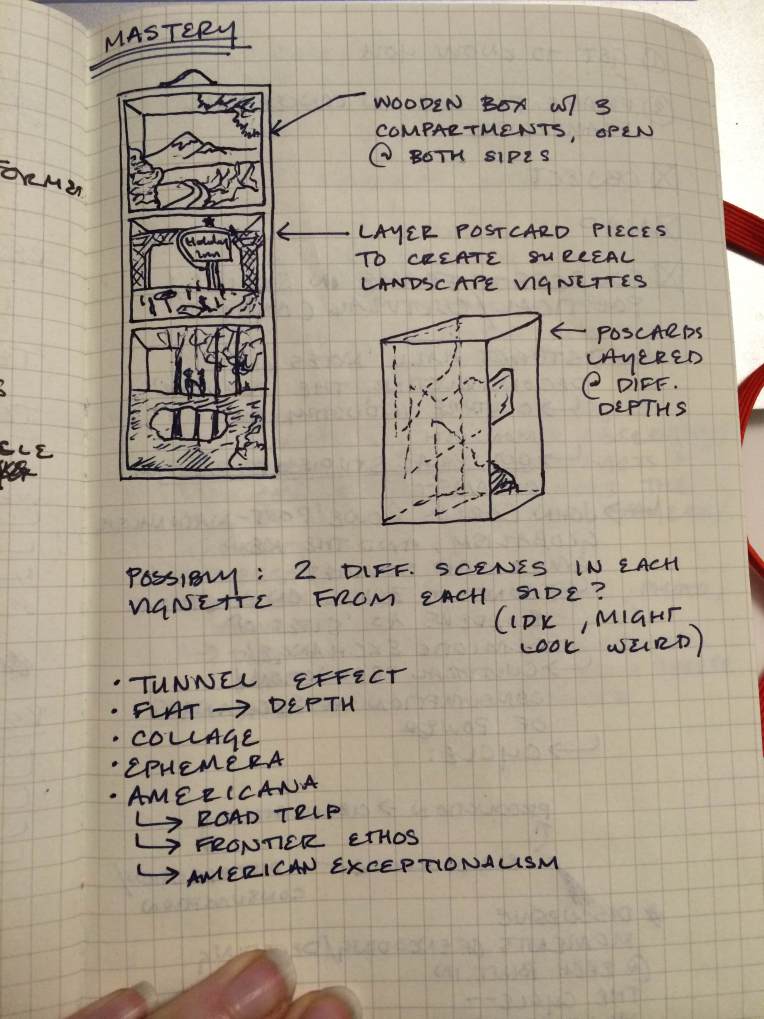 MASTERY
WOODEN BOX w/ 3
COMPARTMENTS, OPEN
@ BOTH SIDES
LAYER POSTCARD PIECES
TO CREATE SURREAL
LANDSCAPE VIGNETTES
Holiday
Inn
POSCARDS
LAYERED
@ DIFF.
DEPTHS
POSSIBLY: 2 DIFF. SCENES IN EACH
VIGNETTE FROM EACH SIDE?
(IDK, MIGHT
LOOK WEIRD)
• TUNNEL EFFECT
• FLAT → DEPTH
• COLLAGE
• EPHEMERA
• AMERICANA
↳ ROAD TRIP
↳ FRONTIER ETHOS
↳ AMERICAN EXCEPTIONALISM